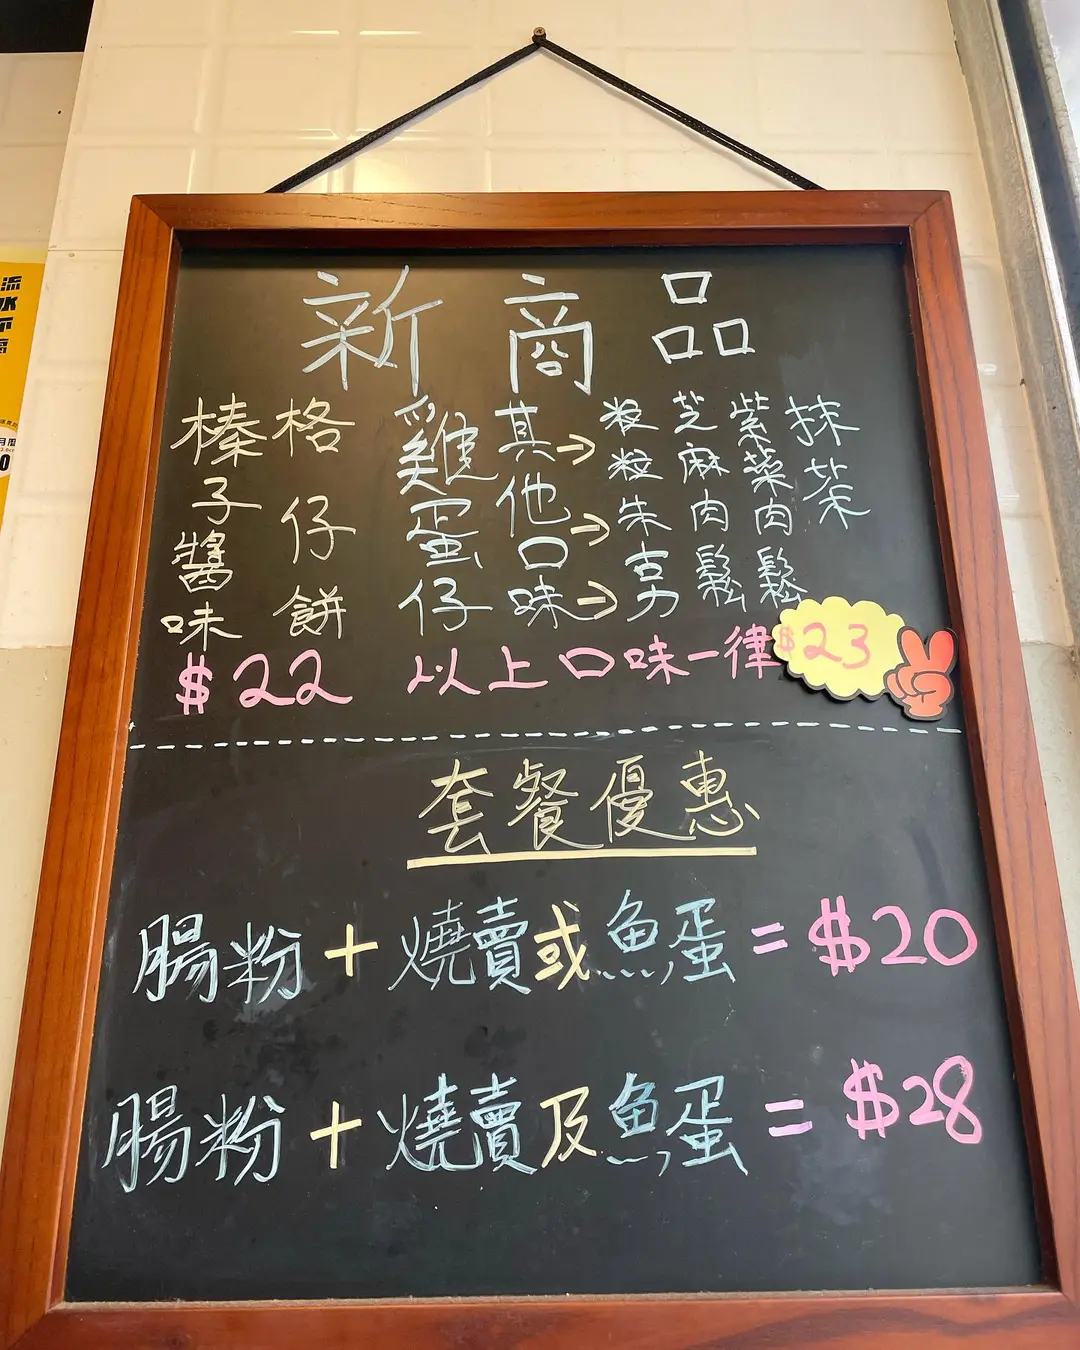 新商品
格仔餅
榛子醬味
$22
雞蛋仔
其他口味
→粒粒朱克力
→芝麻肉鬆
→紫菜肉鬆
抹茶
以上口味一律$23
套餐優惠
腸粉+燒賣或魚蛋=$20
腸粉+燒賣及魚蛋=$28